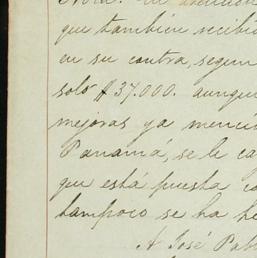 que tambien recibió
en su contra, segun
solo $37.000. aunque
mejoras ya menci
Panamá, se le ca
que está puesta co
tampoco se ha he
A José Pab